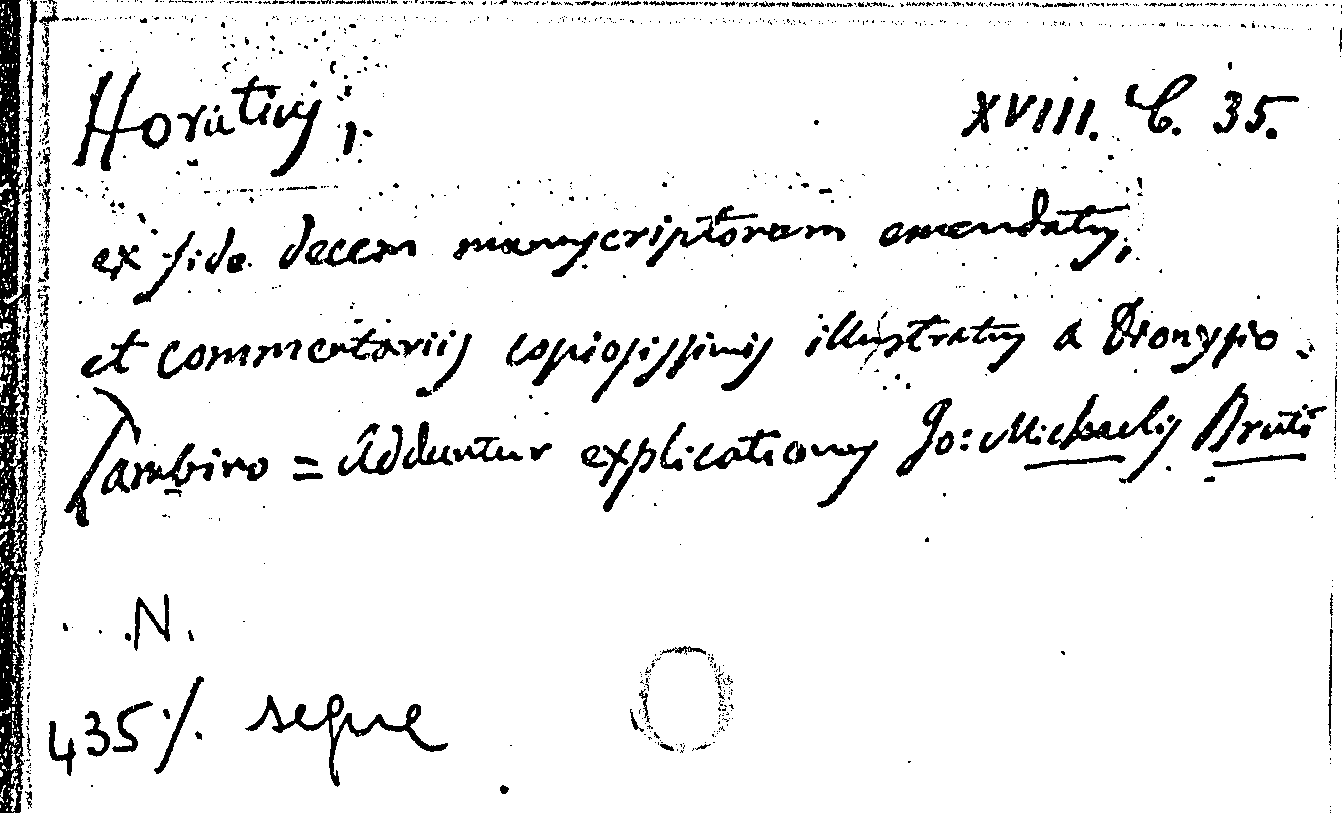 Horatius,
XVIII. C. 35.
ex fide decem manuscriptorum emendatus,
et commentariis copiosissimis illustratus a Dionysio
Lambino = Adduntur explicationes Jo: Michaelis Bruti
N.
435 /. segue